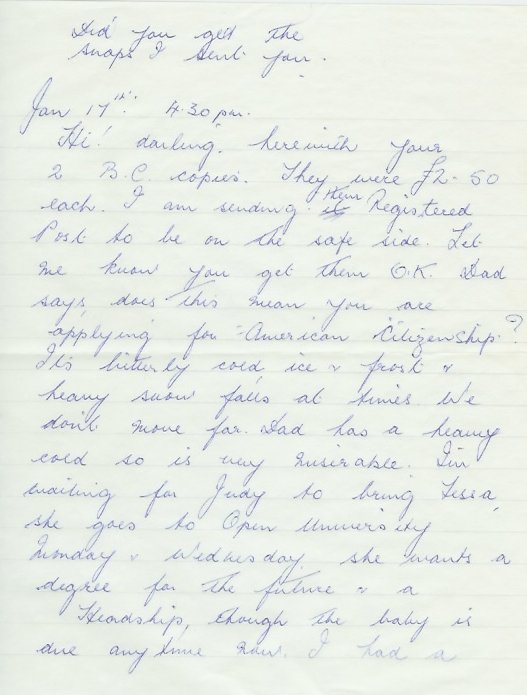 Did you get the
snaps I sent you.
Jan 17th. 4.30 pm.
Hi! darling, herewith your
2 B.C. copies. They were £2-50
each. I am sending them Registered
Post to be on the safe side. Let
me know you get them O.K. Dad
says, does this mean you are
applying for American Citizenship?
Its bitterly cold, ice & frost &
heavy snow falls at times. We
don't move far. Dad has a heavy
cold so is very miserable. I'm
waiting for Judy to bring Lissa,
she goes to Open University
Monday & Wednesday, she wants a
degree for the future & a
Headship, though the baby is
due any time now. I had a